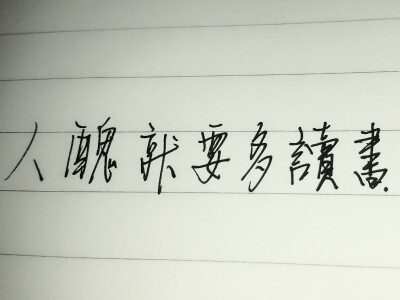 人醜就要多讀書.